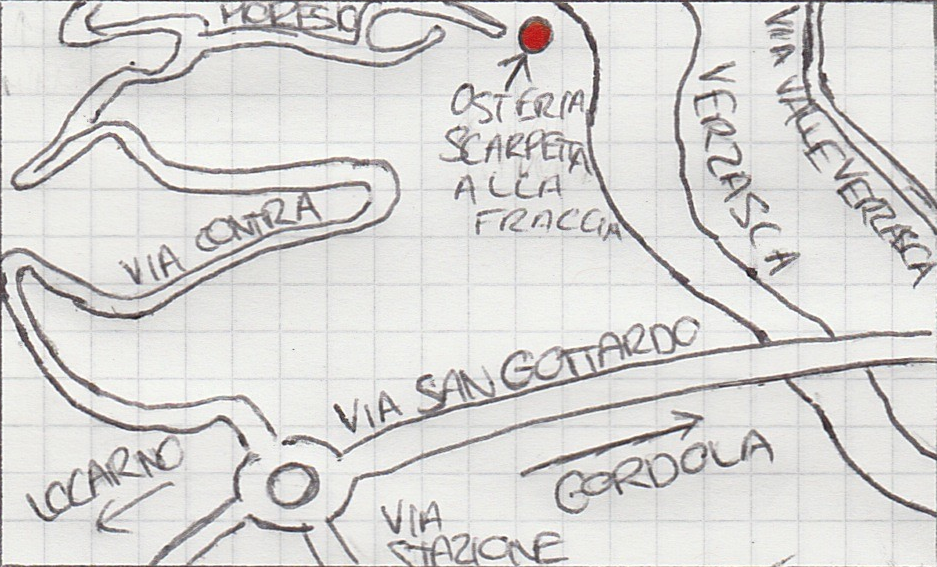 OSTERIA
SCARPETA
ALLA
FRACCIA
VERZASCA
VIA VALLE VERZASCA
VIA CONTRA
VIA SAN GOTTARDO
LOCARNO
GORDOLA
VIA
STAZIONE